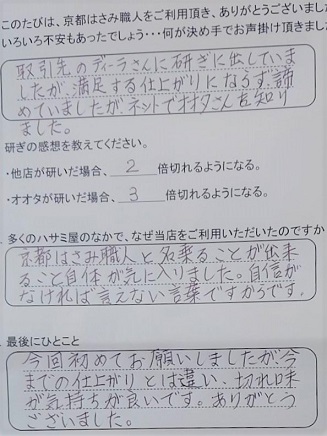 このたびは、京都はさみ職人をご利用頂き、ありがとうございまし
いろいろ不安もあったでしょう･･･何が決め手でお声掛け頂きまし
取引先のディーラさんに研ぎに出していま
したが、満足する仕上がりにならず、諦
めていましたがネットでオオタさんを知り
ました。
研ぎの感想を教えてください。
・他店が研いだ場合、 2 倍切れるようになる。
・オオタが研いだ場合、 3 倍切れるようになる。
多くのハサミ屋のなかで、なぜ当店をご利用いただいたのですか
京都はさみ職人と名乗ることが出来
ること自体が気に入りました。自信が
なければ言えない言葉ですからです。
最後にひとこと
今回初めてお願いしましたが今
までの仕上がりとは違い、切れ味
が気持ちが良いです。ありがとう
ございました。